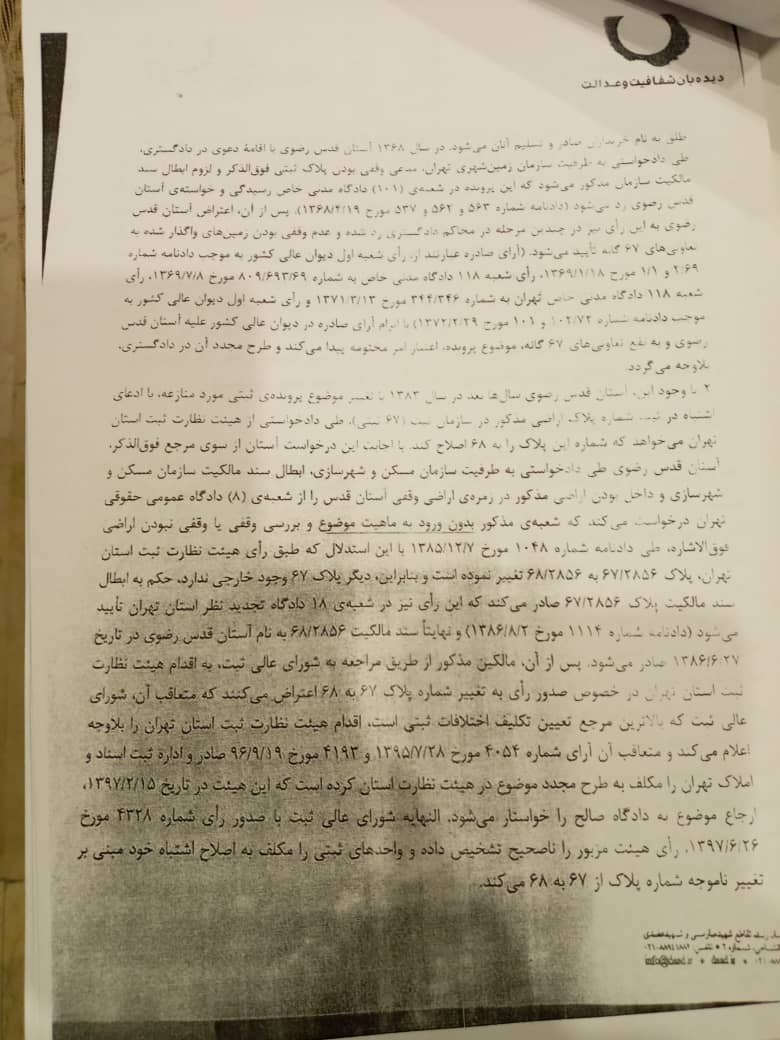 دیده‌بان شفافیت و عدالت
طلق به نام خریداران صادر و تسلیم آنان می‌شود. در سال ۱۳۶۸ آستان قدس رضوی با اقامهٔ دعوی در دادگستری،
طی دادخواستی به طرفیت سازمان زمین‌شهری تهران، مدعی وقفی بودن پلاک ثبتی فوق‌الذکر و لزوم ابطال سند
مالکیت سازمان مذکور می‌شود که این پرونده در شعبه‌ی (۱۰۱) دادگاه مدنی خاص رسیدگی و خواسته‌ی آستان
قدس رضوی رد می‌شود (دادنامه شماره ۵۶۳ و ۵۶۲ و ۵۳۷ مورخ ۱۳۶۸/۴/۱۹). پس از آن، اعتراض آستان قدس
رضوی به این رأی نیز در چندین مرحله در محاکم دادگستری رد شده و عدم وقفی بودن زمین‌های واگذار شده به
تعاونی‌های ۶۷ گانه تأیید می‌شود. (آرای صادره عبارتند از، رأی شعبه اول دیوان عالی کشور به موجب دادنامه شماره
۲/۶۹ و ۱/۱ مورخ ۱۳۶۹/۱/۱۸، رأی شعبه ۱۱۸ دادگاه مدنی خاص به شماره ۸۰۹/۶۹۳/۶۹ مورخ ۱۳۶۹/۷/۸، رأی
شعبه ۱۱۸ دادگاه مدنی خاص تهران به شماره ۳۴۴/۳۴۶ مورخ ۱۳۷۱/۳/۱۳ و رأی شعبه اول دیوان عالی کشور به
موجب دادنامه شماره ۱۰۲/۷۲ و ۱۰۱ مورخ ۱۳۷۲/۲/۲۹) با ابرام آرای صادره در دیوان عالی کشور علیه آستان قدس
رضوی و به نفع تعاونی‌های ۶۷ گانه، موضوع پرونده، اعتبار امر مختومه پیدا می‌کند و طرح مجدد آن در دادگستری،
بلاوجه می‌گردد.
۲. با وجود این، آستان قدس رضوی سال‌ها بعد در سال ۱۳۸۳ با تغییر موضوع پرونده‌ی ثبتی مورد منازعه، با ادعای
اشتباه در ثبت شماره پلاک اراضی مذکور در سازمان ثبت (۶۷ ثبتی)، طی دادخواستی از هیئت نظارت ثبت استان
تهران می‌خواهد که شماره این پلاک را به ۶۸ اصلاح کند. با اجابت این درخواست آستان از سوی مرجع فوق‌الذکر،
آستان قدس رضوی طی دادخواستی به طرفیت سازمان مسکن و شهرسازی، ابطال سند مالکیت سازمان مسکن و
شهرسازی و داخل بودن اراضی مذکور در زمره‌ی اراضی وقفی آستان قدس را از شعبه‌ی (۸) دادگاه عمومی حقوقی
تهران درخواست می‌کند که شعبه‌ی مذکور بدون ورود به ماهیت موضوع و بررسی وقفی یا وقفی نبودن اراضی
فوق‌الاشاره، طی دادنامه شماره ۱۰۴۸ مورخ ۱۳۸۵/۱۲/۷ با این استدلال که طبق رأی هیئت نظارت ثبت استان
تهران، پلاک ۶۷/۲۸۵۶ به ۶۸/۲۸۵۶ تغییر نموده است و بنابراین، دیگر پلاک ۶۷ وجود خارجی ندارد، حکم به ابطال
سند مالکیت پلاک ۶۷/۲۸۵۶ صادر می‌کند که این رأی نیز در شعبه‌ی ۱۸ دادگاه تجدید نظر استان تهران تأیید
می‌شود (دادنامه شماره ۱۱۱۴ مورخ ۱۳۸۶/۸/۲) و نهایتاً سند مالکیت ۶۸/۲۸۵۶ به نام آستان قدس رضوی در تاریخ
۱۳۸۶/۶/۲۷ صادر می‌شود. پس از آن، مالکین مذکور از طریق مراجعه به شورای عالی ثبت، به اقدام هیئت نظارت
ثبت استان تهران در خصوص صدور رأی به تغییر شماره پلاک ۶۷ به ۶۸ اعتراض می‌کنند که متعاقب آن، شورای
عالی ثبت که بالاترین مرجع تعیین تکلیف اختلافات ثبتی است، اقدام هیئت نظارت ثبت استان تهران را بلاوجه
اعلام می‌کند و متعاقب آن آرای شماره ۴۰۵۴ مورخ ۱۳۹۵/۷/۲۸ و ۴۱۹۳ مورخ ۹۶/۹/۱۹ صادر و اداره ثبت اسناد و
املاک تهران را مکلف به طرح مجدد موضوع در هیئت نظارت استان کرده است که این هیئت در تاریخ ۱۳۹۷/۲/۱۵،
ارجاع موضوع به دادگاه صالح را خواستار می‌شود. النهایه شورای عالی ثبت با صدور رأی شماره ۴۳۲۸ مورخ
۱۳۹۷/۶/۲۶، رأی هیئت مزبور را ناصحیح تشخیص داده و واحدهای ثبتی را مکلف به اصلاح اشتباه خود مبنی بر
تغییر ناموجه شماره پلاک از ۶۷ به ۶۸ می‌کند.
تقاطع شهید
شماره ۲ • تلفن:
daad.ir •